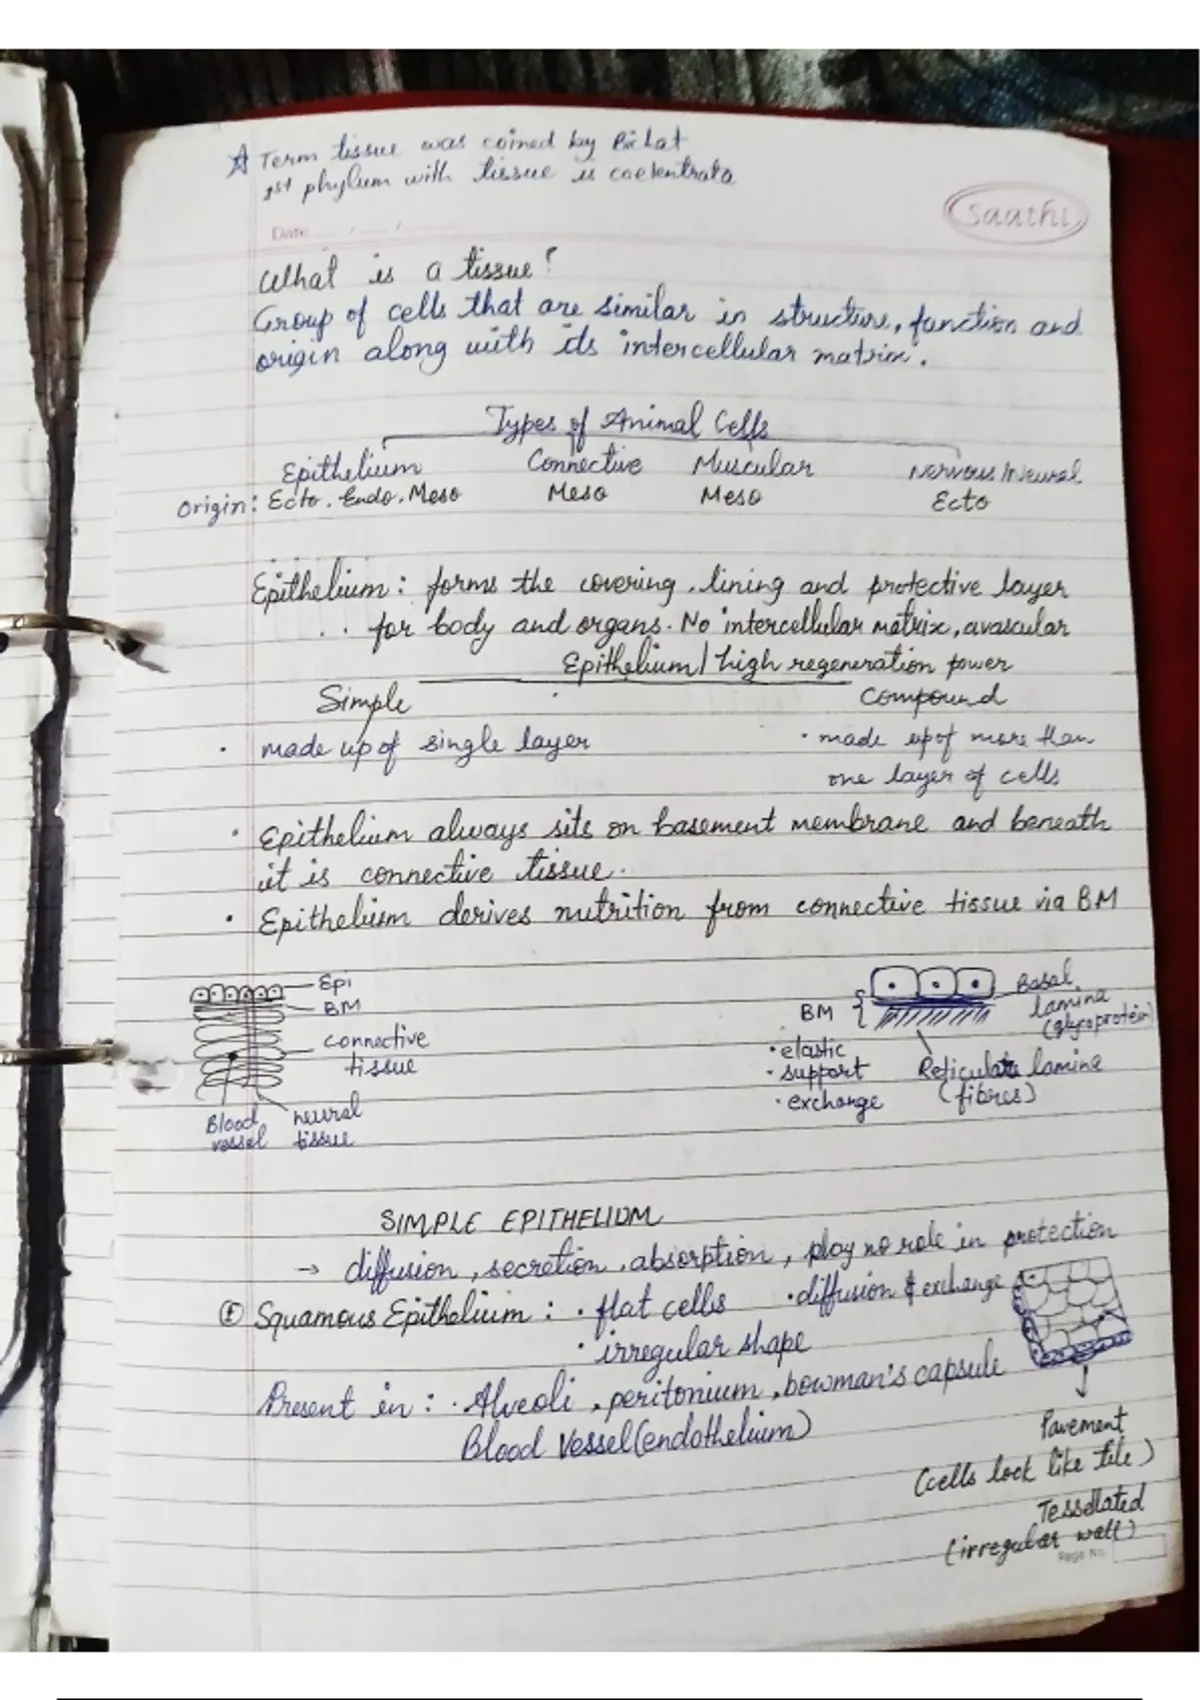 ☆ Term tissue was coined by Bichat
1st phylum with tissue is coelentrata
saathi
Date / /
What is a tissue?
Group of cells that are similar in structure, function and
origin along with its intercellular matrix.
Types of Animal Cells
Epithelium Connective Muscular Nervous/Neural
Origin: Ecto. Endo. Meso Meso Meso Ecto
Epithelium: forms the covering, lining and protective layer
for body and organs. No intercellular matrix, avascular
Epithelium / high regeneration power
Simple Compound
• made up of single layer • made up of more than
one layer of cells
• Epithelium always sits on basement membrane and beneath
it is connective tissue.
• Epithelium derives nutrition from connective tissue via BM
Epi
BM
connective
tissue
Blood
vessel
neural
tissue
BM
Basal
lamina
(glycoprotein)
• elastic
• support
• exchange
Reticulate lamina
(fibres)
SIMPLE EPITHELIUM
→ diffusion, secretion, absorption, play no role in protection
① Squamous Epithelium : • flat cells • diffusion & exchange
• irregular shape
Present in : • Alveoli, peritonium, bowman's capsule
Blood Vessel (endothelium)
Pavement
(cells look like tile)
Tessellated
(irregular wall)
Page No.